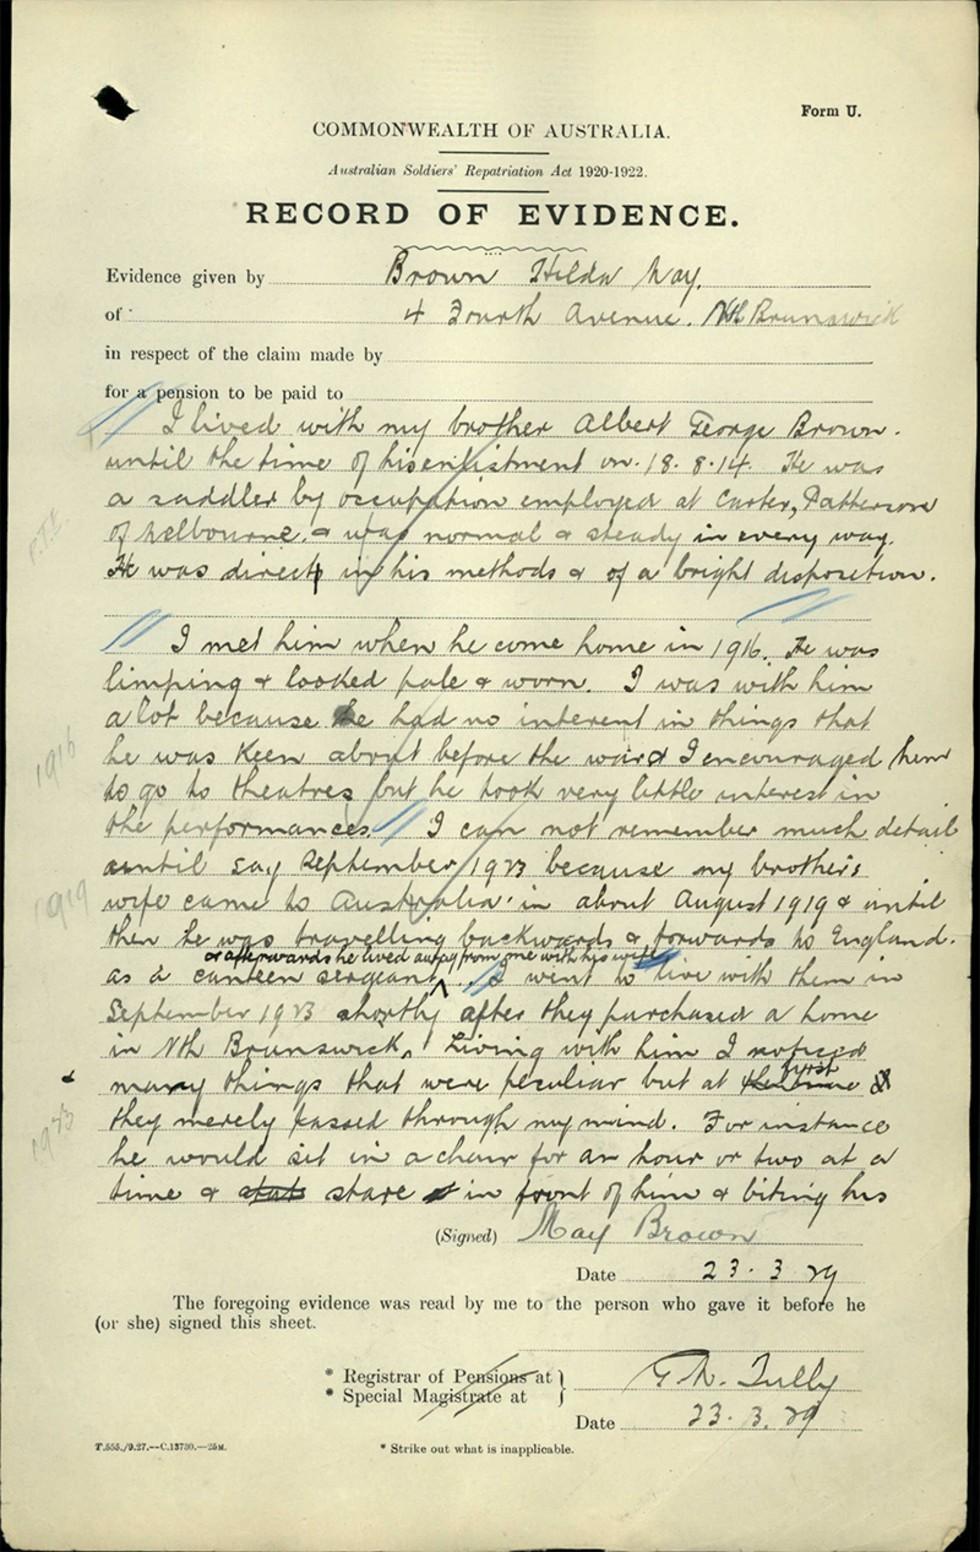 Form U.
COMMONWEALTH OF AUSTRALIA.
Australian Soldiers' Repatriation Act 1920-1922.
RECORD OF EVIDENCE.
Evidence given by Brown Hilda May.
of 4 Fourth Avenue. Nth Brunswick
in respect of the claim made by
for a pension to be paid to
I lived with my brother Albert George Brown.
until the time of his enlistment on. 18. 8. 14. He was
a saddler by occupation employed at Carter, Patterson
of Melbourne. & was normal & steady in every way.
He was direct in his methods & of a bright disposition.
I met him when he come home in 1916. He was
limping & looked pale & worn. I was with him
a lot because he had no interest in things that
1916
he was keen about before the war & I encouraged him
to go to theatres but he took very little interest in
the performances. I can not remember much detail
until say September 1923 because my brother's
1919
wife came to Australia in about August 1919 & until
then he was travelling backwards & forwards to England.
& afterwards he lived away from me with his wife
as a canteen sergeant. I went to live with them in
September 1923 shortly after they purchased a home
in Nth Brunswick. Living with him I noticed
first
many things that were peculiar but at the time
1923
they merely passed through my mind. For instance
he would sit in a chair for an hour or two at a
time & stare in front of him & biting his
(Signed) May Brown
Date 23. 3. 29
The foregoing evidence was read by me to the person who gave it before he
(or she) signed this sheet.
* Registrar of Pensions at
* Special Magistrate at
G. M. Tully
Date 23. 3. 29
T.555./9.27.—C.13730.—25M.
* Strike out what is inapplicable.